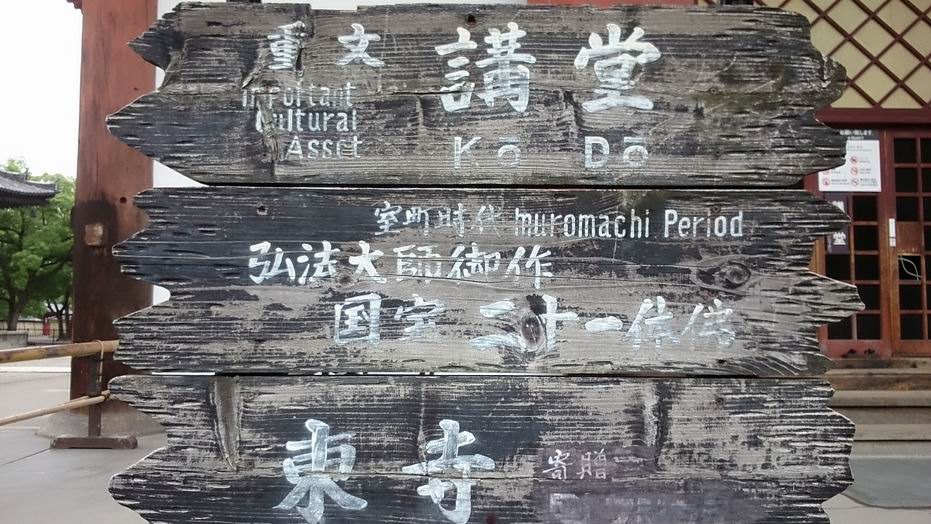 重文 講堂
Important
Cultural
Asset
Kō Dō
室町時代 muromachi Period
弘法大師御作
国宝 二十一体佛
東寺
寄贈